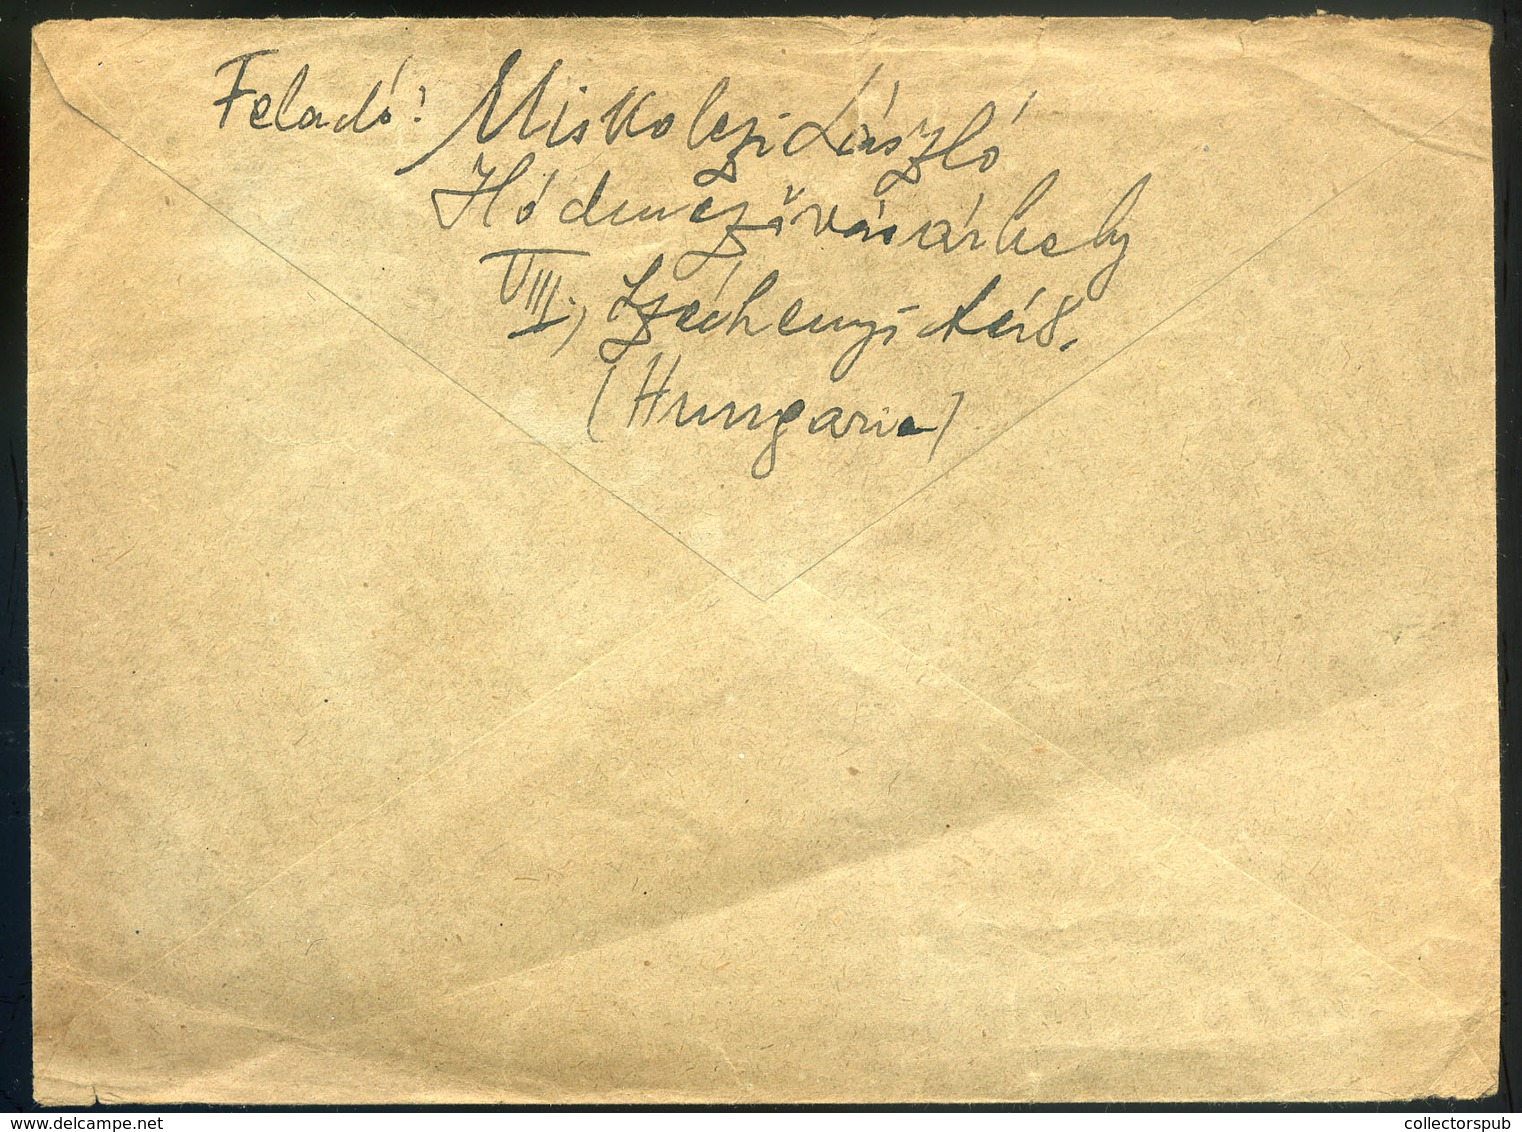 Feladó: Miskolczi László
Hódmezővásárhely
VIII., Széchenyi tér 8.
(Hungaria)
www.delcampe.net
collectorspub